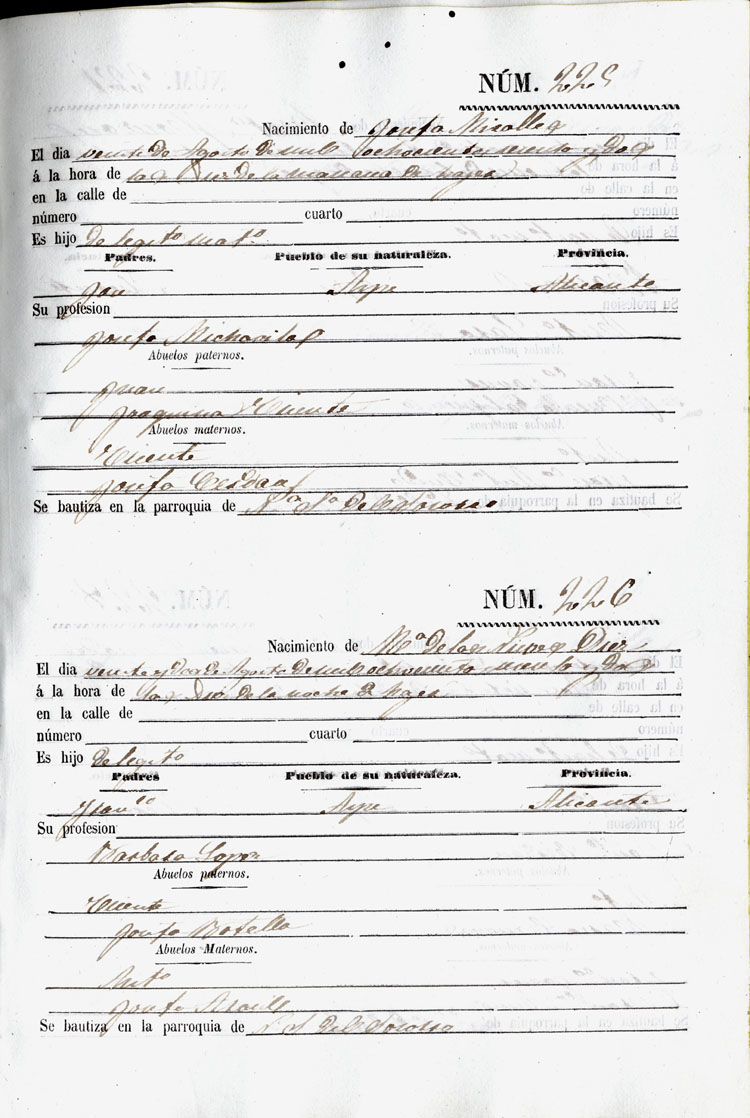 NÚM. 225
Nacimiento de Josefa Miralles
El dia veinte de Agosto de mil ochocientos sesenta y dos
á la hora de las diez de la mañana
en la calle de
número cuarto
Es hijo de legitº matº
Padres. Pueblo de su naturaleza. Provincia.
Aspe Alicante
Su profesion
Josefa
Abuelos paternos.
Juan
Joaquina Vicente
Abuelos maternos.
Vicente
Josefa
Se bautiza en la parroquia de Nª Sª del Socorro
NÚM. 226
Nacimiento de Mª de las Nieves
El dia veinte y dos de Agosto de mil ochocientos y dos
á la hora de las de la noche
en la calle de
número cuarto
Es hijo de legitº
Padres Pueblo de su naturaleza. Provincia.
Franco Aspe Alicante
Su profesion
Barbara Lopez
Abuelos paternos.
Vicente
Josefa Botella
Abuelos Maternos.
Antº
Josefa
Se bautiza en la parroquia de N. S. del Socorro